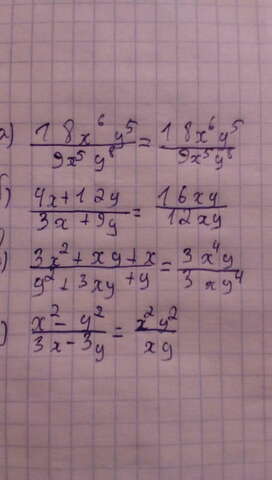 а) 18x⁶y⁵/9x⁵y⁸ = 18x⁶y⁵/9x⁵y⁸
б) 4x+12y/3x+9y = 16xy/12xy
) 3x²+xy+x/y²+3xy+y = 3x⁴y/3xy⁴
) x²-y²/3x-3y = x²y²/xy